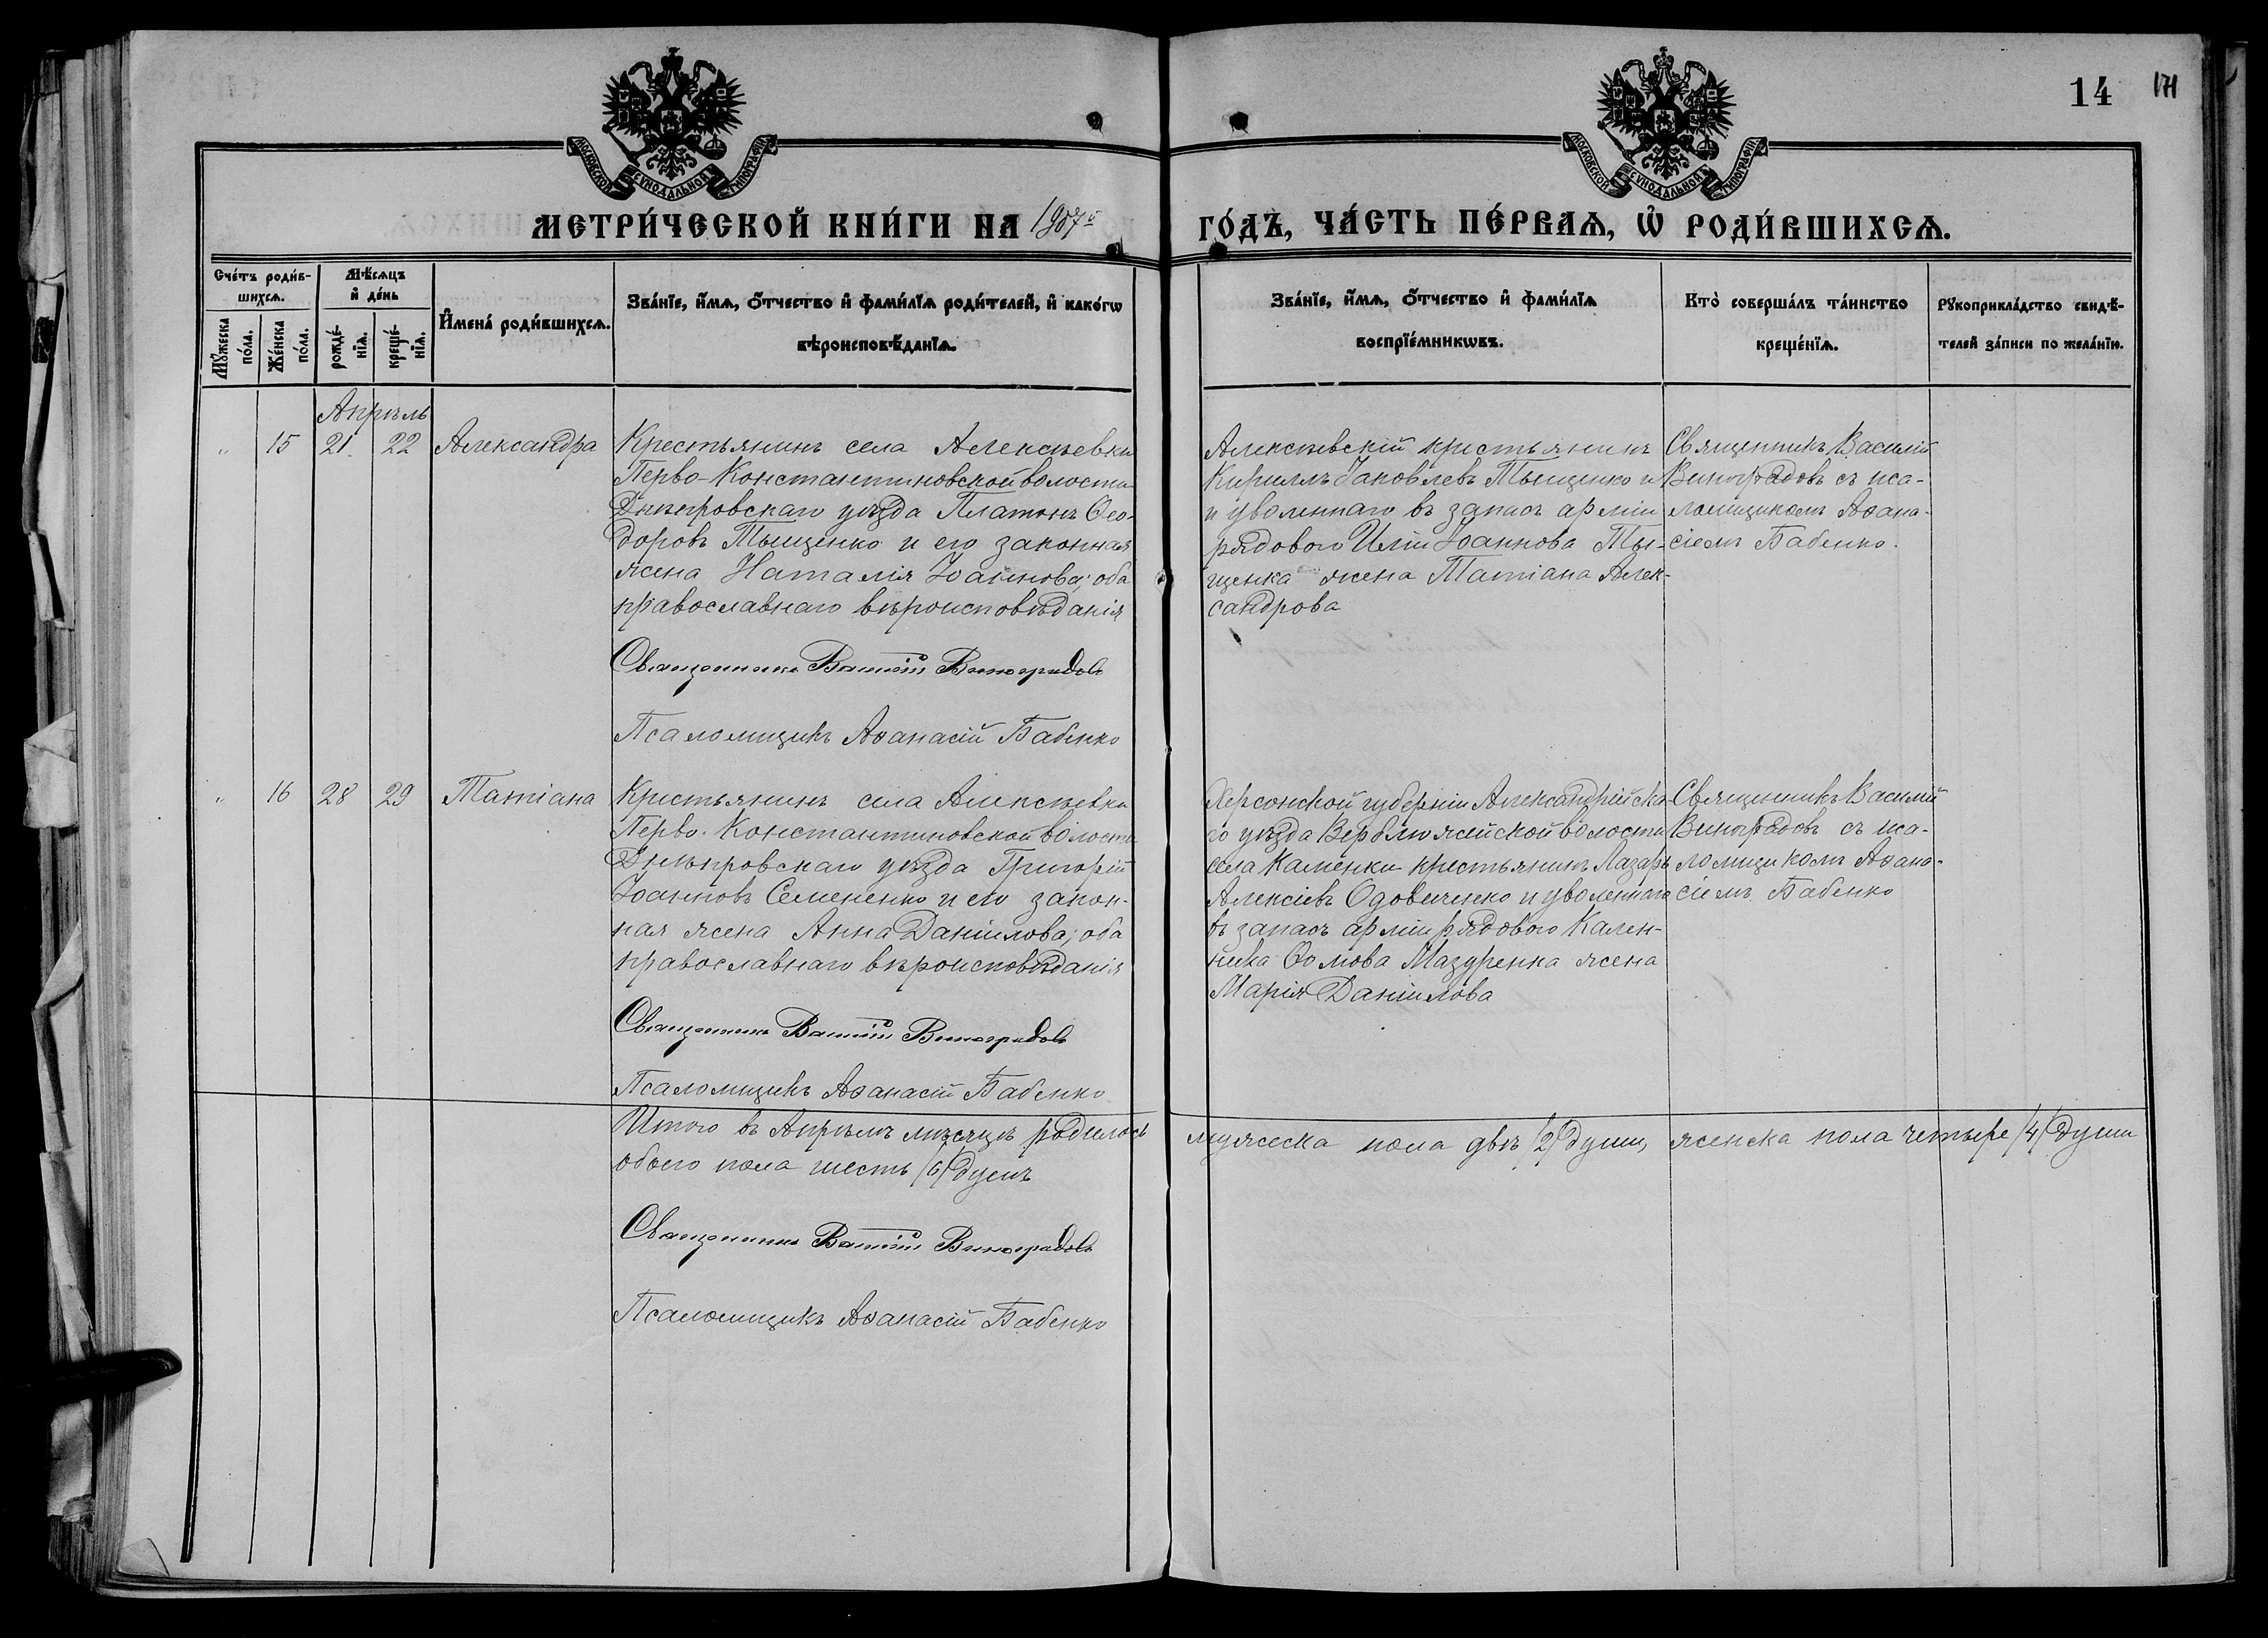 14 171
МОСКОВСКОЙ СѴНОДАЛЬНОЙ ТИПОГРАФІИ
МОСКОВСКОЙ СѴНОДАЛЬНОЙ ТИПОГРАФІИ
МЕТРИ́ЧЕСКОЙ КНИ́ГИ НА 1907 й ГО́ДЪ, ЧА́СТЬ ПЕ́РВАѦ, Ѡ҆ РОДИ́ВШИХСѦ.
Сче́тъ роди́в-
шихсѧ.
Мꙋ́жеска
по́ла.
Же́нска
по́ла.
Мѣ́сѧцъ
и҆ де́нь
рожде́-
нїѧ.
креще́-
нїѧ.
И҆мена̀ роди́вшихсѧ.
Зва́нїе, и҆́мѧ, ѻ҆́тчество и҆ фами́лїѧ роди́телей, и҆ како́гѡ
вѣроисповѣ́данїѧ.
Зва́нїе, и҆́мѧ, ѻ҆́тчество и҆ фами́лїѧ
воспрїе́мникѡвъ.
Кто̀ соверша́лъ та́инство
креще́нїѧ.
Рꙋкоприкла́дство свидѣ́-
телей за́писи по жела́нїю.
Апрѣль
" 15 21 22 Александра
Крестьянинъ села Алексѣевки
Перво-Константиновской волости
Днѣпровскаго уѣзда Платонъ Ѳео-
доровъ Тыщенко и его законная
жена Наталія Іоаннова; оба
православнаго вѣроисповѣданія
Священникъ Василій Виноградовъ
Псаломщикъ Аѳанасій Бабенко
Алексѣевскій крестьянинъ
Кириллъ Іаковлевъ Тыщенко и
и уволеннаго въ запасъ арміи
рядового Иліи Іоаннова Ты-
щенка жена Татіана Алек-
сандрова
Священникъ Василій
Виноградовъ съ пса-
ломщикомъ Аѳана-
сіемъ Бабенко.
" 16 28 29 Татіана
Крестьянинъ села Алексѣевки
Перво-Константиновской волости
Днѣпровскаго уѣзда Григорій
Іоанновъ Семененко и его закон-
ная жена Анна Даніилова; оба
православнаго вѣроисповѣданія
Священникъ Василій Виноградовъ
Псаломщикъ Аѳанасій Бабенко
Херсонской губерніи Александрійска-
го уѣзда Верблюжской волости
села Каменки крестьянинъ Лазарь
Алексіевъ Одовиченко и уволеннаго
въ запасъ арміи рядового Кален-
ника Ѳомова Мазуренка жена
Марія Даніилова
Священникъ Василій
Виноградовъ съ пса-
ломщикомъ Аѳана-
сіемъ Бабенко
Итого въ Апрѣлѣ мѣсяцѣ родилось мужеска пола двѣ /2/ души, женска пола четыре /4/ души
обоего пола шесть /6/ душъ
Священникъ Василій Виноградовъ
Псаломщикъ Аѳанасій Бабенко